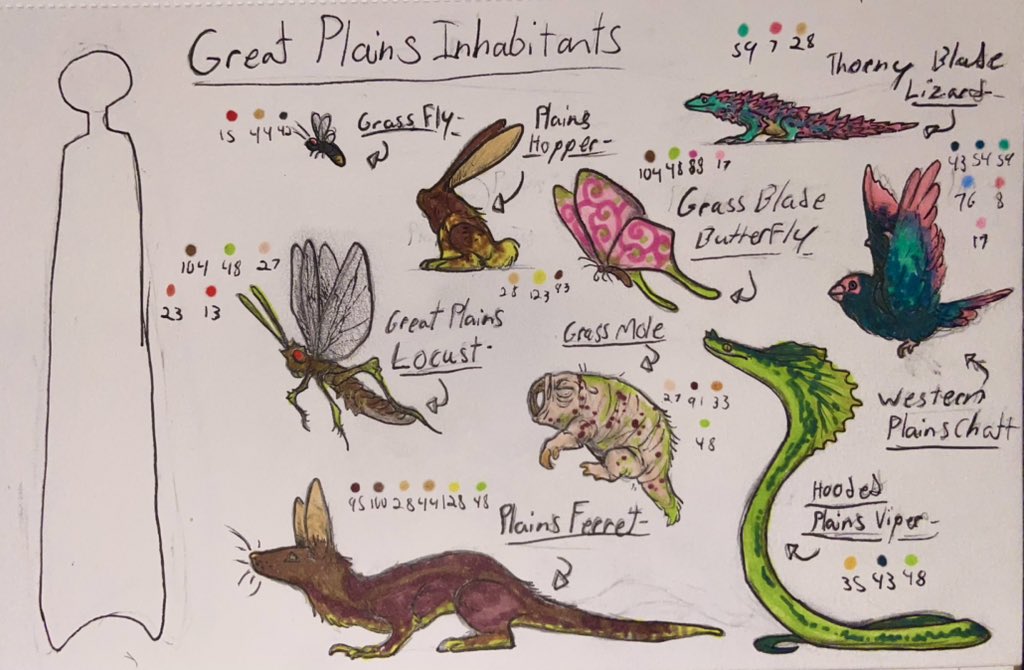 Great Plains Inhabitants
59 7 28
Thorny Blade
Lizard-
15 44 42
Grass Fly-
Plains
Hopper-
104 48 83 17
43 54 59
76 8
17
Grass Blade
Butterfly
104 48 27
23 13
28 123 93
Great Plains
Locust-
Grass Mole
27 91 33
48
Western
Plains Chatt
95 100 28 44 128 48
Plains Ferret-
Hooded
Plains Viper-
35 43 48